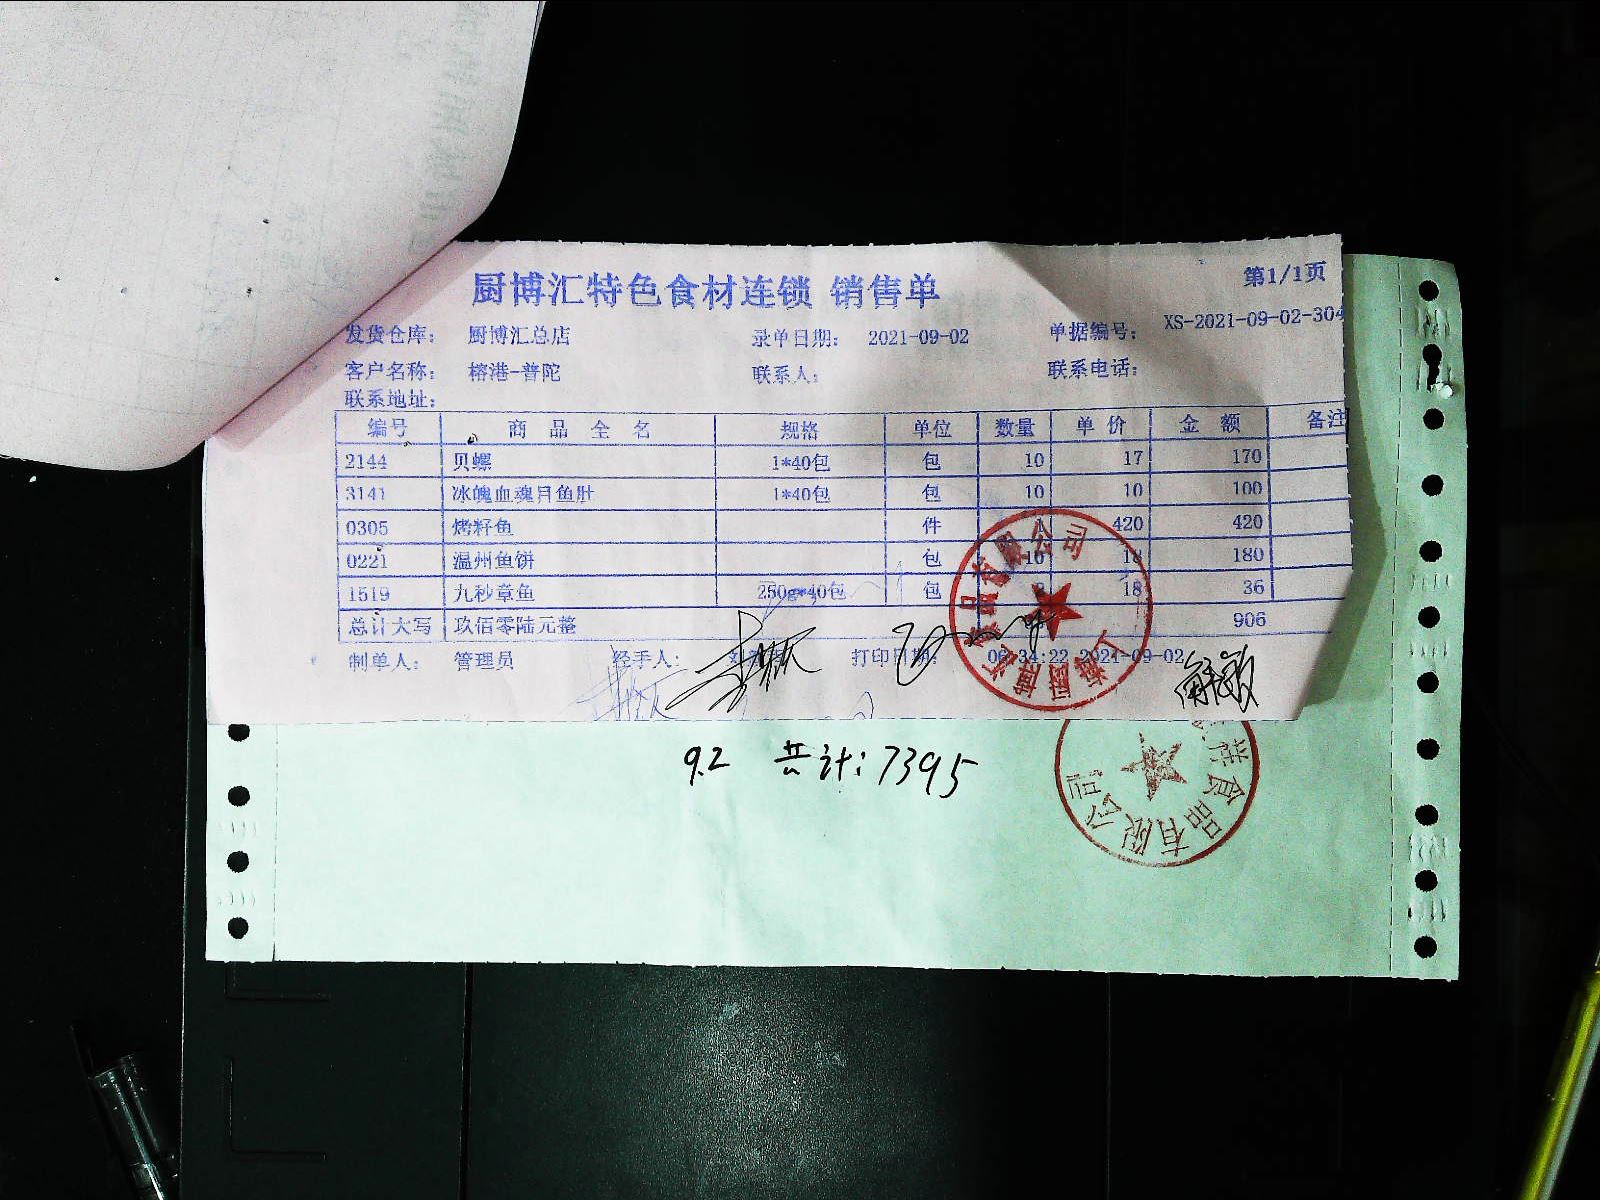 厨博汇特色食材连锁 销售单
第1/1页
发货仓库: 厨博汇总店 录单日期: 2021-09-02 单据编号: XS-2021-09-02-304
客户名称: 榕港-普陀 联系人: 联系电话:
联系地址:
编号 商品全名 规格 单位 数量 单价 金额 备注
2144 贝螺 1*40包 包 10 17 170
3141 冰魄血魂目鱼肚 1*40包 包 10 10 100
0305 烤籽鱼 件 1 420 420
0221 温州鱼饼 包 10 18 180
1519 九秒章鱼 250g*40包 包 2 18 36
总计大写 玖佰零陆元整 906
制单人: 管理员 经手人: 打印日期: 06:34:22 2021-09-02
9.2 共计:7395
食品有限公司